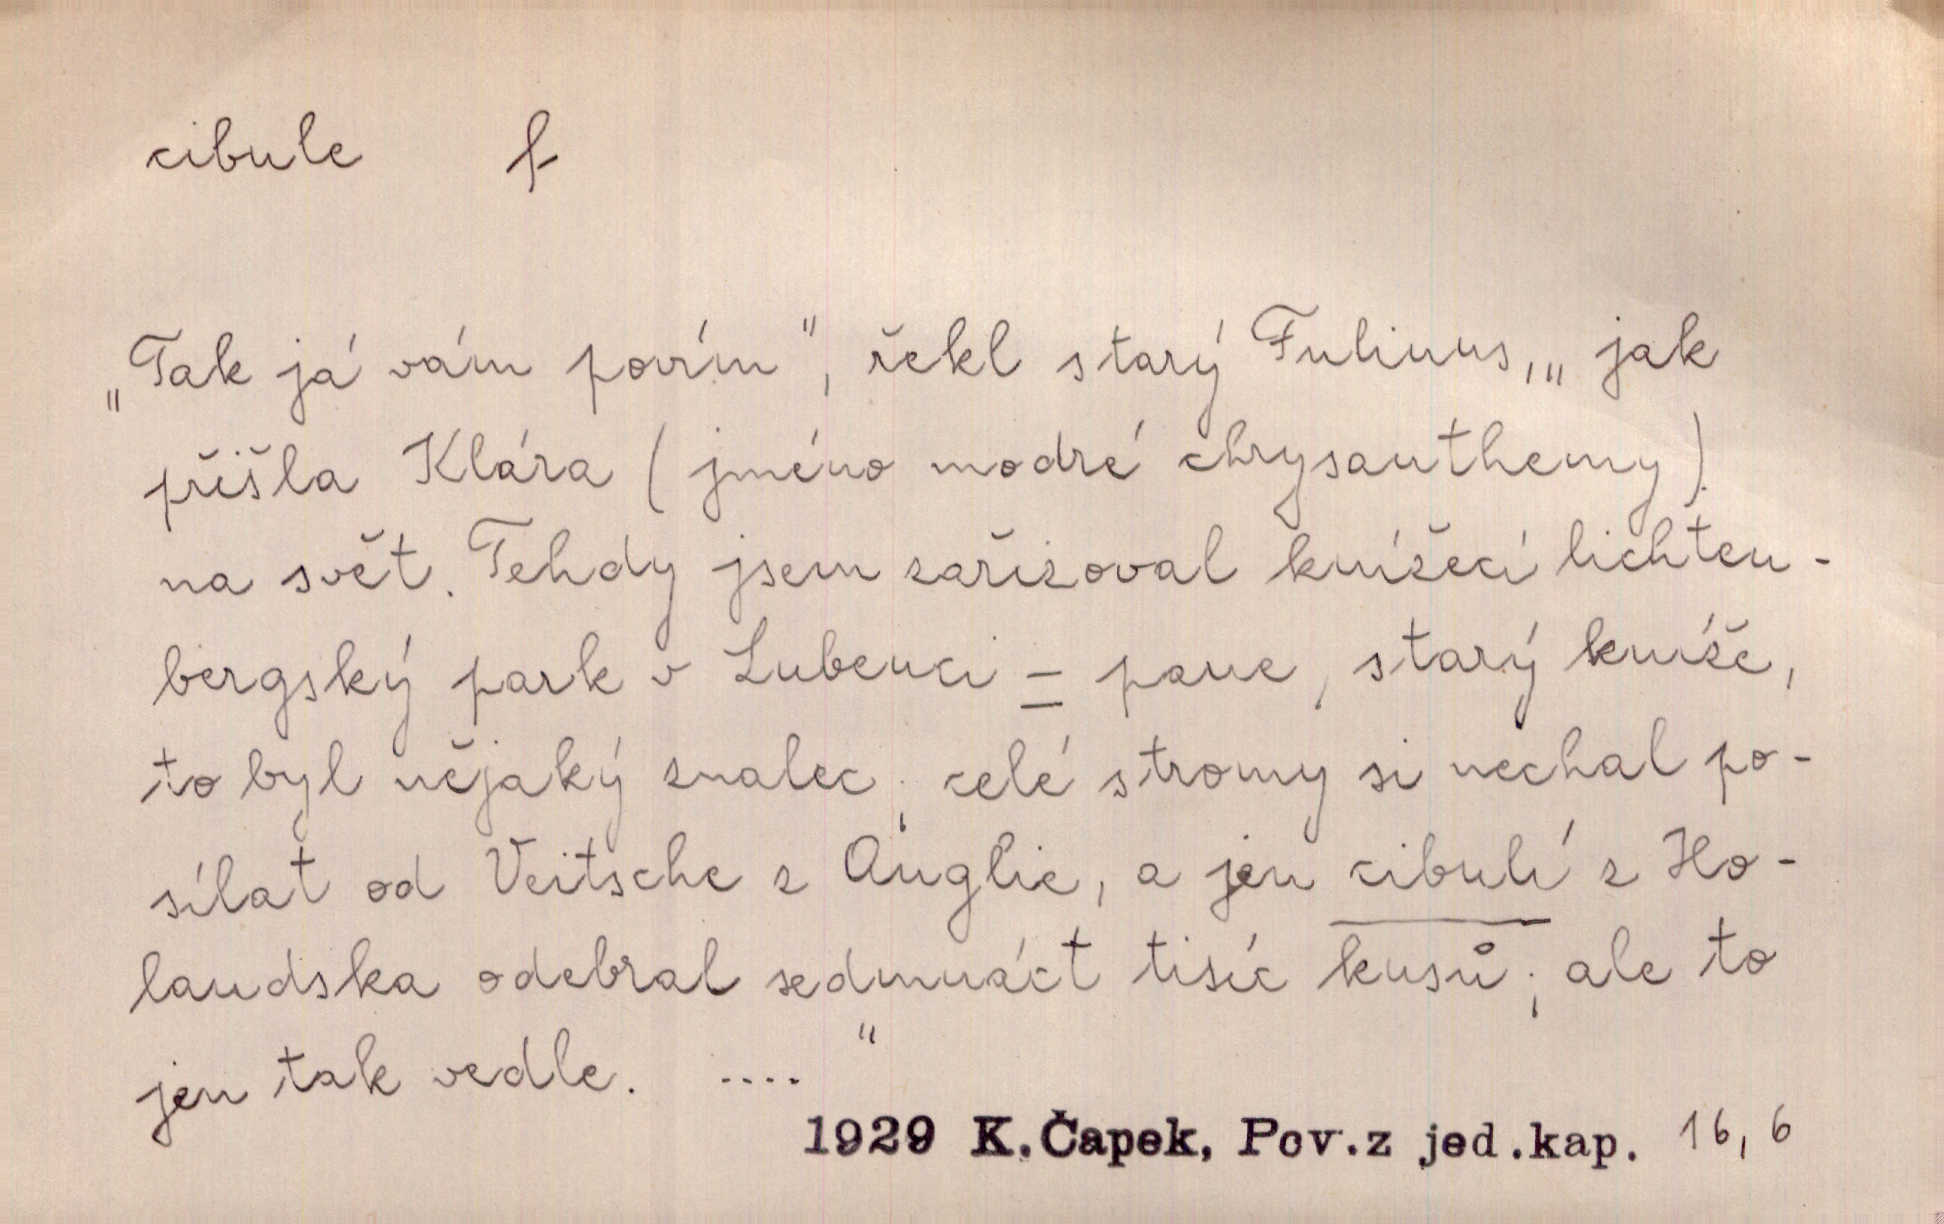 cibule f
„Tak já vám povím", řekl starý Fulinus, „jak
přišla Klára (jméno modré chrysanthemy)
na svět. Tehdy jsem zařizoval knížecí lichten-
bergský park v Lubenci = pane, starý kníže,
to byl nějaký znalec; celé stromy si nechal po-
sílat od Veitsche z Anglie, a jen cibulí z Ho-
landska odebral sedmnáct tisíc kusů; ale to
jen tak vedle. ...."
1929 K. Čapek, Pov. z jed. kap. 16, 6